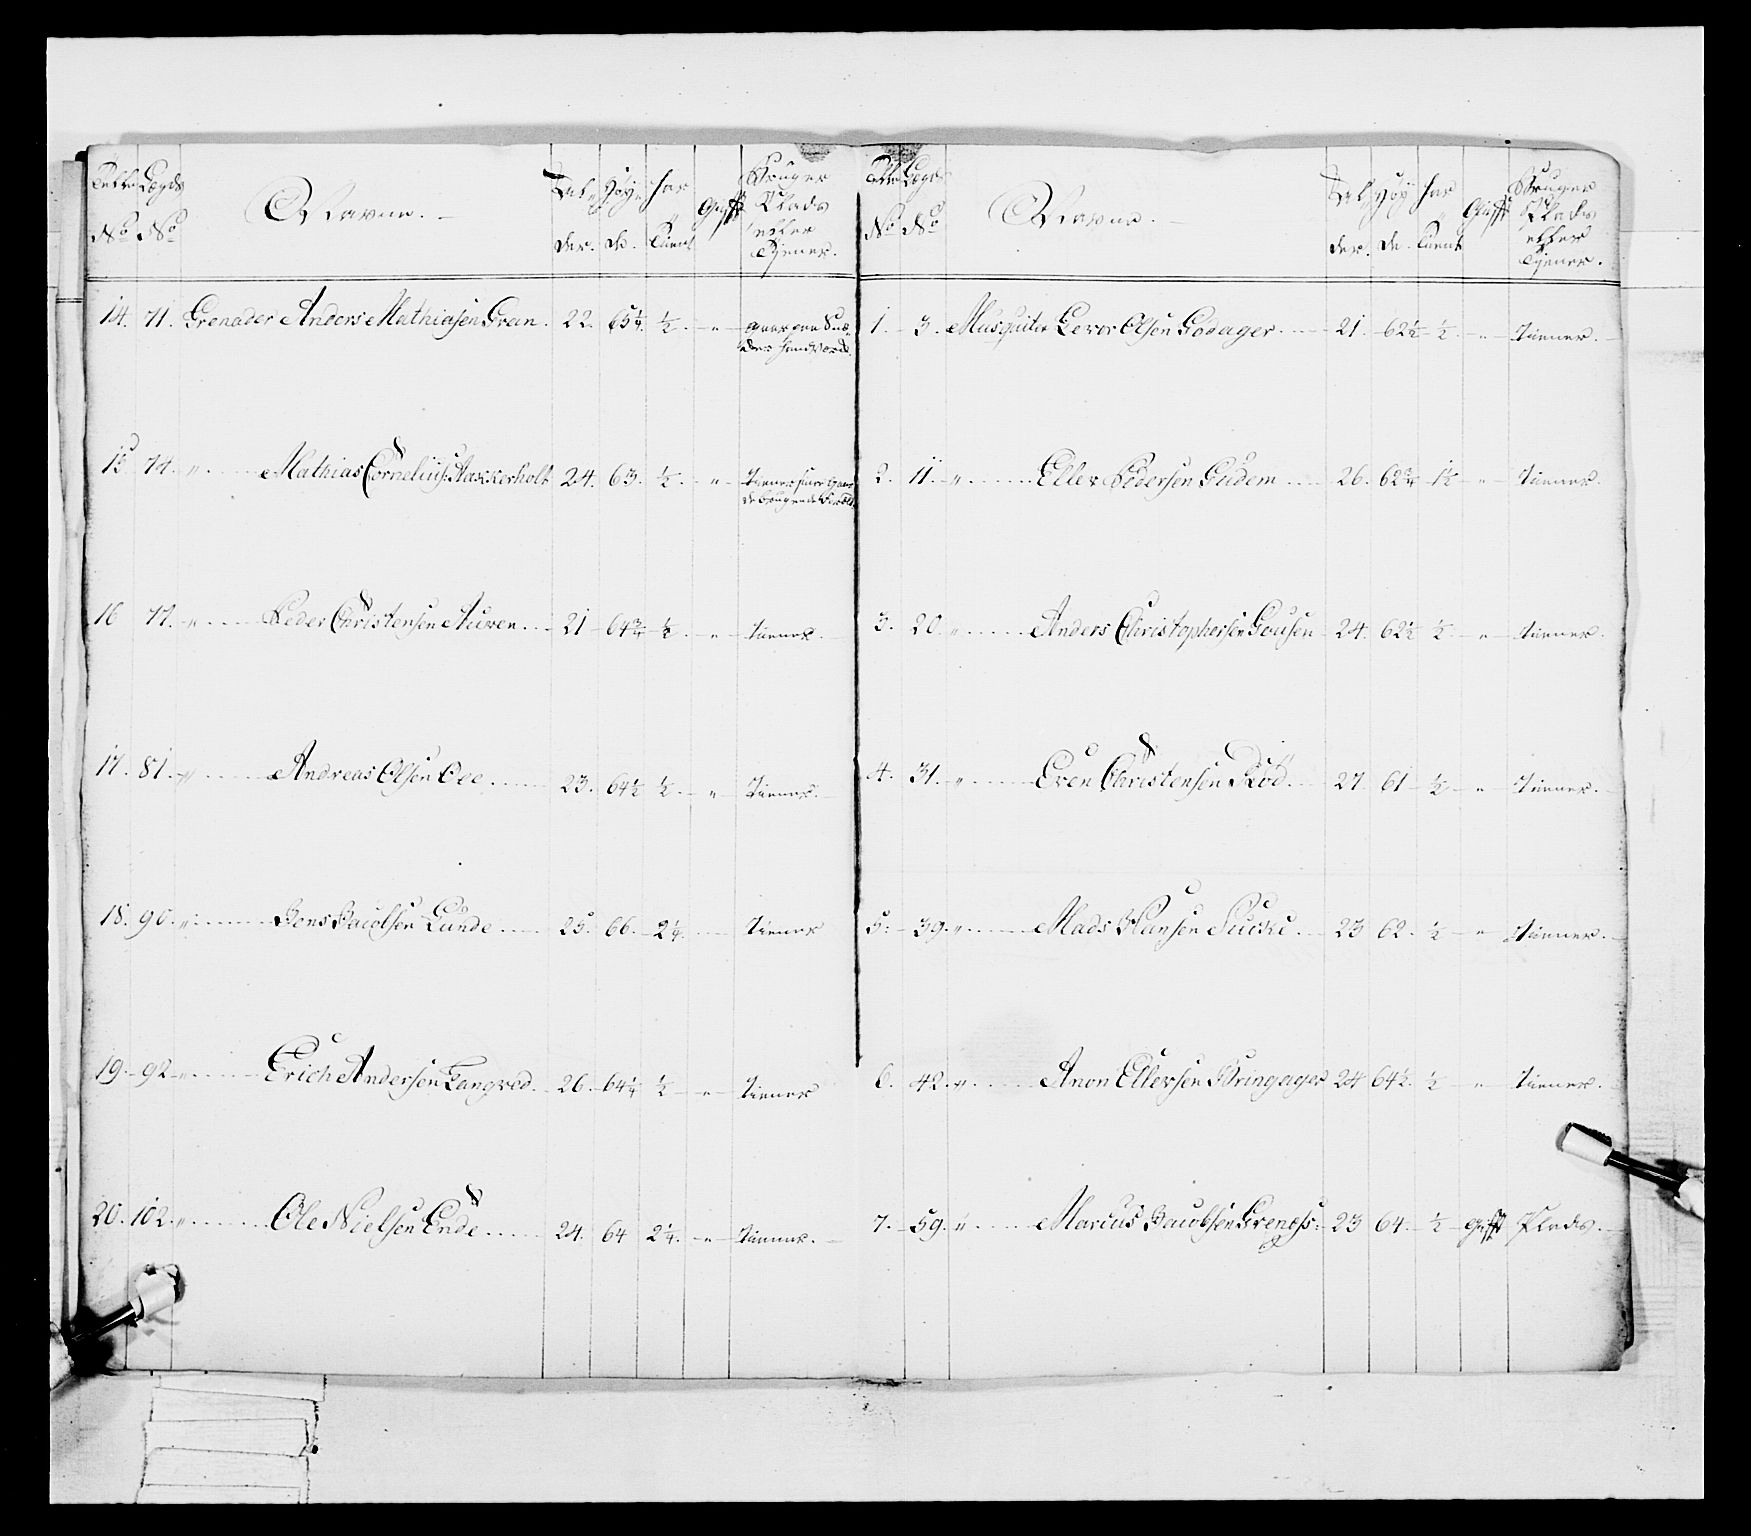 No No Navne. Al- der. Høy- de. har tient Gift Bruger Plads eller Tjener.
14. 71. Grenader Anders Mathiasen Gran. 22. 65¼. ½. - " -
15. 74. " Mathias Cornelius: Aakkerholt 24. 63. ½. - "
16 77. " Peder Christensen Auren 21 64¾ ½. - " - tiener.
17. 81. " Andreas Olsen Oee 23. 64½ ½. - " Tiener.
18. 90. " Jens Jacobsen Lunde 25. 66. 2¼. Tiener
19. 92 " Erich Andersen Langred. 26. 64¼ ½ - " - Tiener
20. 102. " Ole Nielsen Ende 24. 64 2¼. - " - Tiener.
No No Navne. Al- der. Høy- de. har tient Gift Bruger Plads eller Tjener.
1. 3. Musquiter Levor Olsen Godager 21. 62½ ½. - " - Tiener.
2. 11. " Eller Pedersen Gudem 26. 62¾ 1½ - " - Tiener.
3. 20. " Anders Christophersen Gousen 24. 62½ ½. - " - tiener.
4. 31. " Even Christensen Röd. 27 61 ½ - " - Tiener.
5. 39. " Mads Hansen 23 62. ½ - " - Tiener.
6. 42. " Anon Ellevsen Bringager 24 64½. ½ - " Tiener.
7. 59. " Marcus Jacobsen Greness: 23 64. ½ Gift Plads.